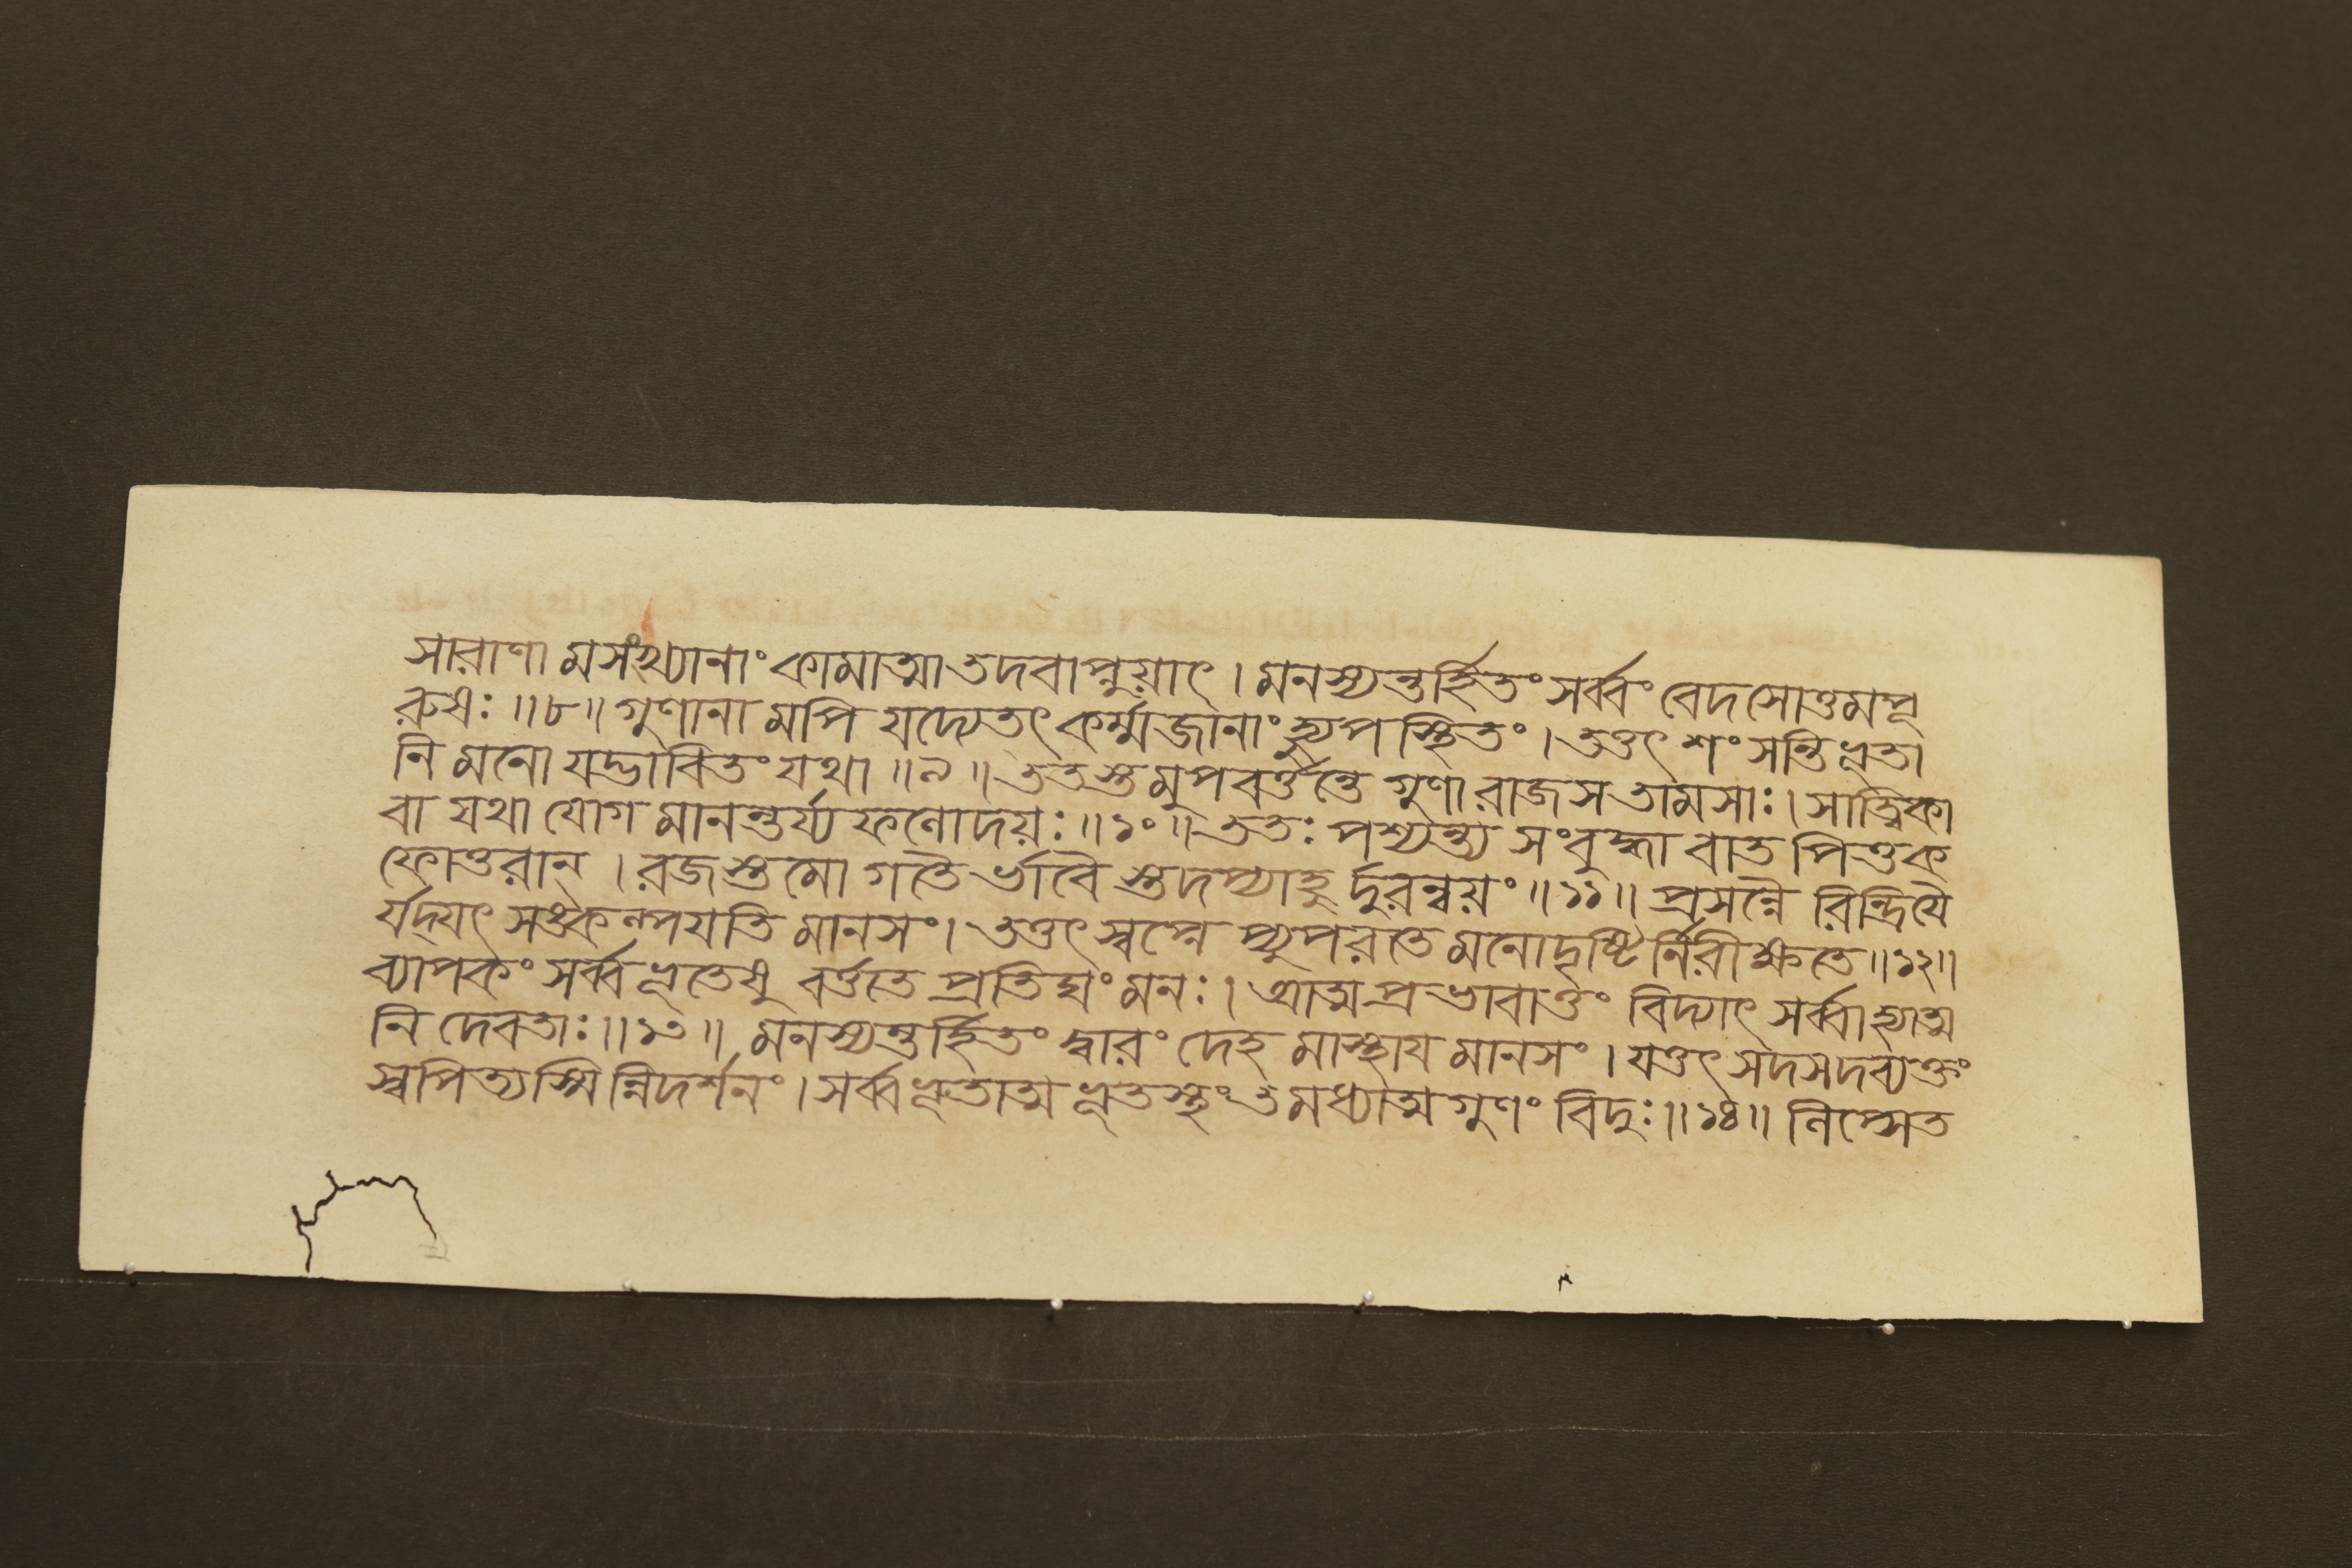 সারাণা মসংখ্যানাং কামাত্মা তদবাপ্নুয়াৎ । মনস্যন্তর্হিতং সর্ব্বং বেদসোত্তমপূ
রুষঃ ॥৮॥ গুণানা মপি যদ্যেতৎ কর্ম্মজানাং হ্যুপস্থিতং । তত্তৎ শংসন্তি ভূতা
নি মনো যদ্ভাবিতং যথা ॥৯॥ ততস্তমুপবর্ত্তন্তে গুণা রাজসতামসাঃ । সাত্ত্বিকা
বা যথা যোগ মানন্তর্য্য ফলোদয়ঃ ॥১০॥ ততঃ পশ্যন্ত্য সংবুদ্ধ্যা বাত পিত্তক
ফোত্তরান্ । রজস্তমো গতৈ র্ভাবৈ স্তদপ্যাহু র্দুরন্বয়ং ॥১১॥ প্রসন্নৈ রিন্দ্রিয়ৈ
র্যদ্‌যৎ সঙ্কল্পযতি মানসং । তত্তৎ স্বপ্নে প্যুপরতে মনোদৃষ্টি র্নিরীক্ষতে ॥১২॥
ব্যাপকং সর্ব্বভূতেষু বর্ত্ততে প্রতিঘং মনঃ । আত্মপ্রভাবাত্তং বিদ্যাৎ সর্ব্বাহ্যাত্ম
নি দেবতাঃ ॥১৩॥ মনস্যন্তর্হিতং দ্বারং দেহ মাস্থায মানসং । যত্তৎ সদসদব্যক্তং
স্বপিত্যস্মি ন্নিদর্শনং । সর্ব্বভূতাত্ম ভূতস্থং তমধ্যাত্মগুণং বিদুঃ ॥১৪॥ লিপ্সেত